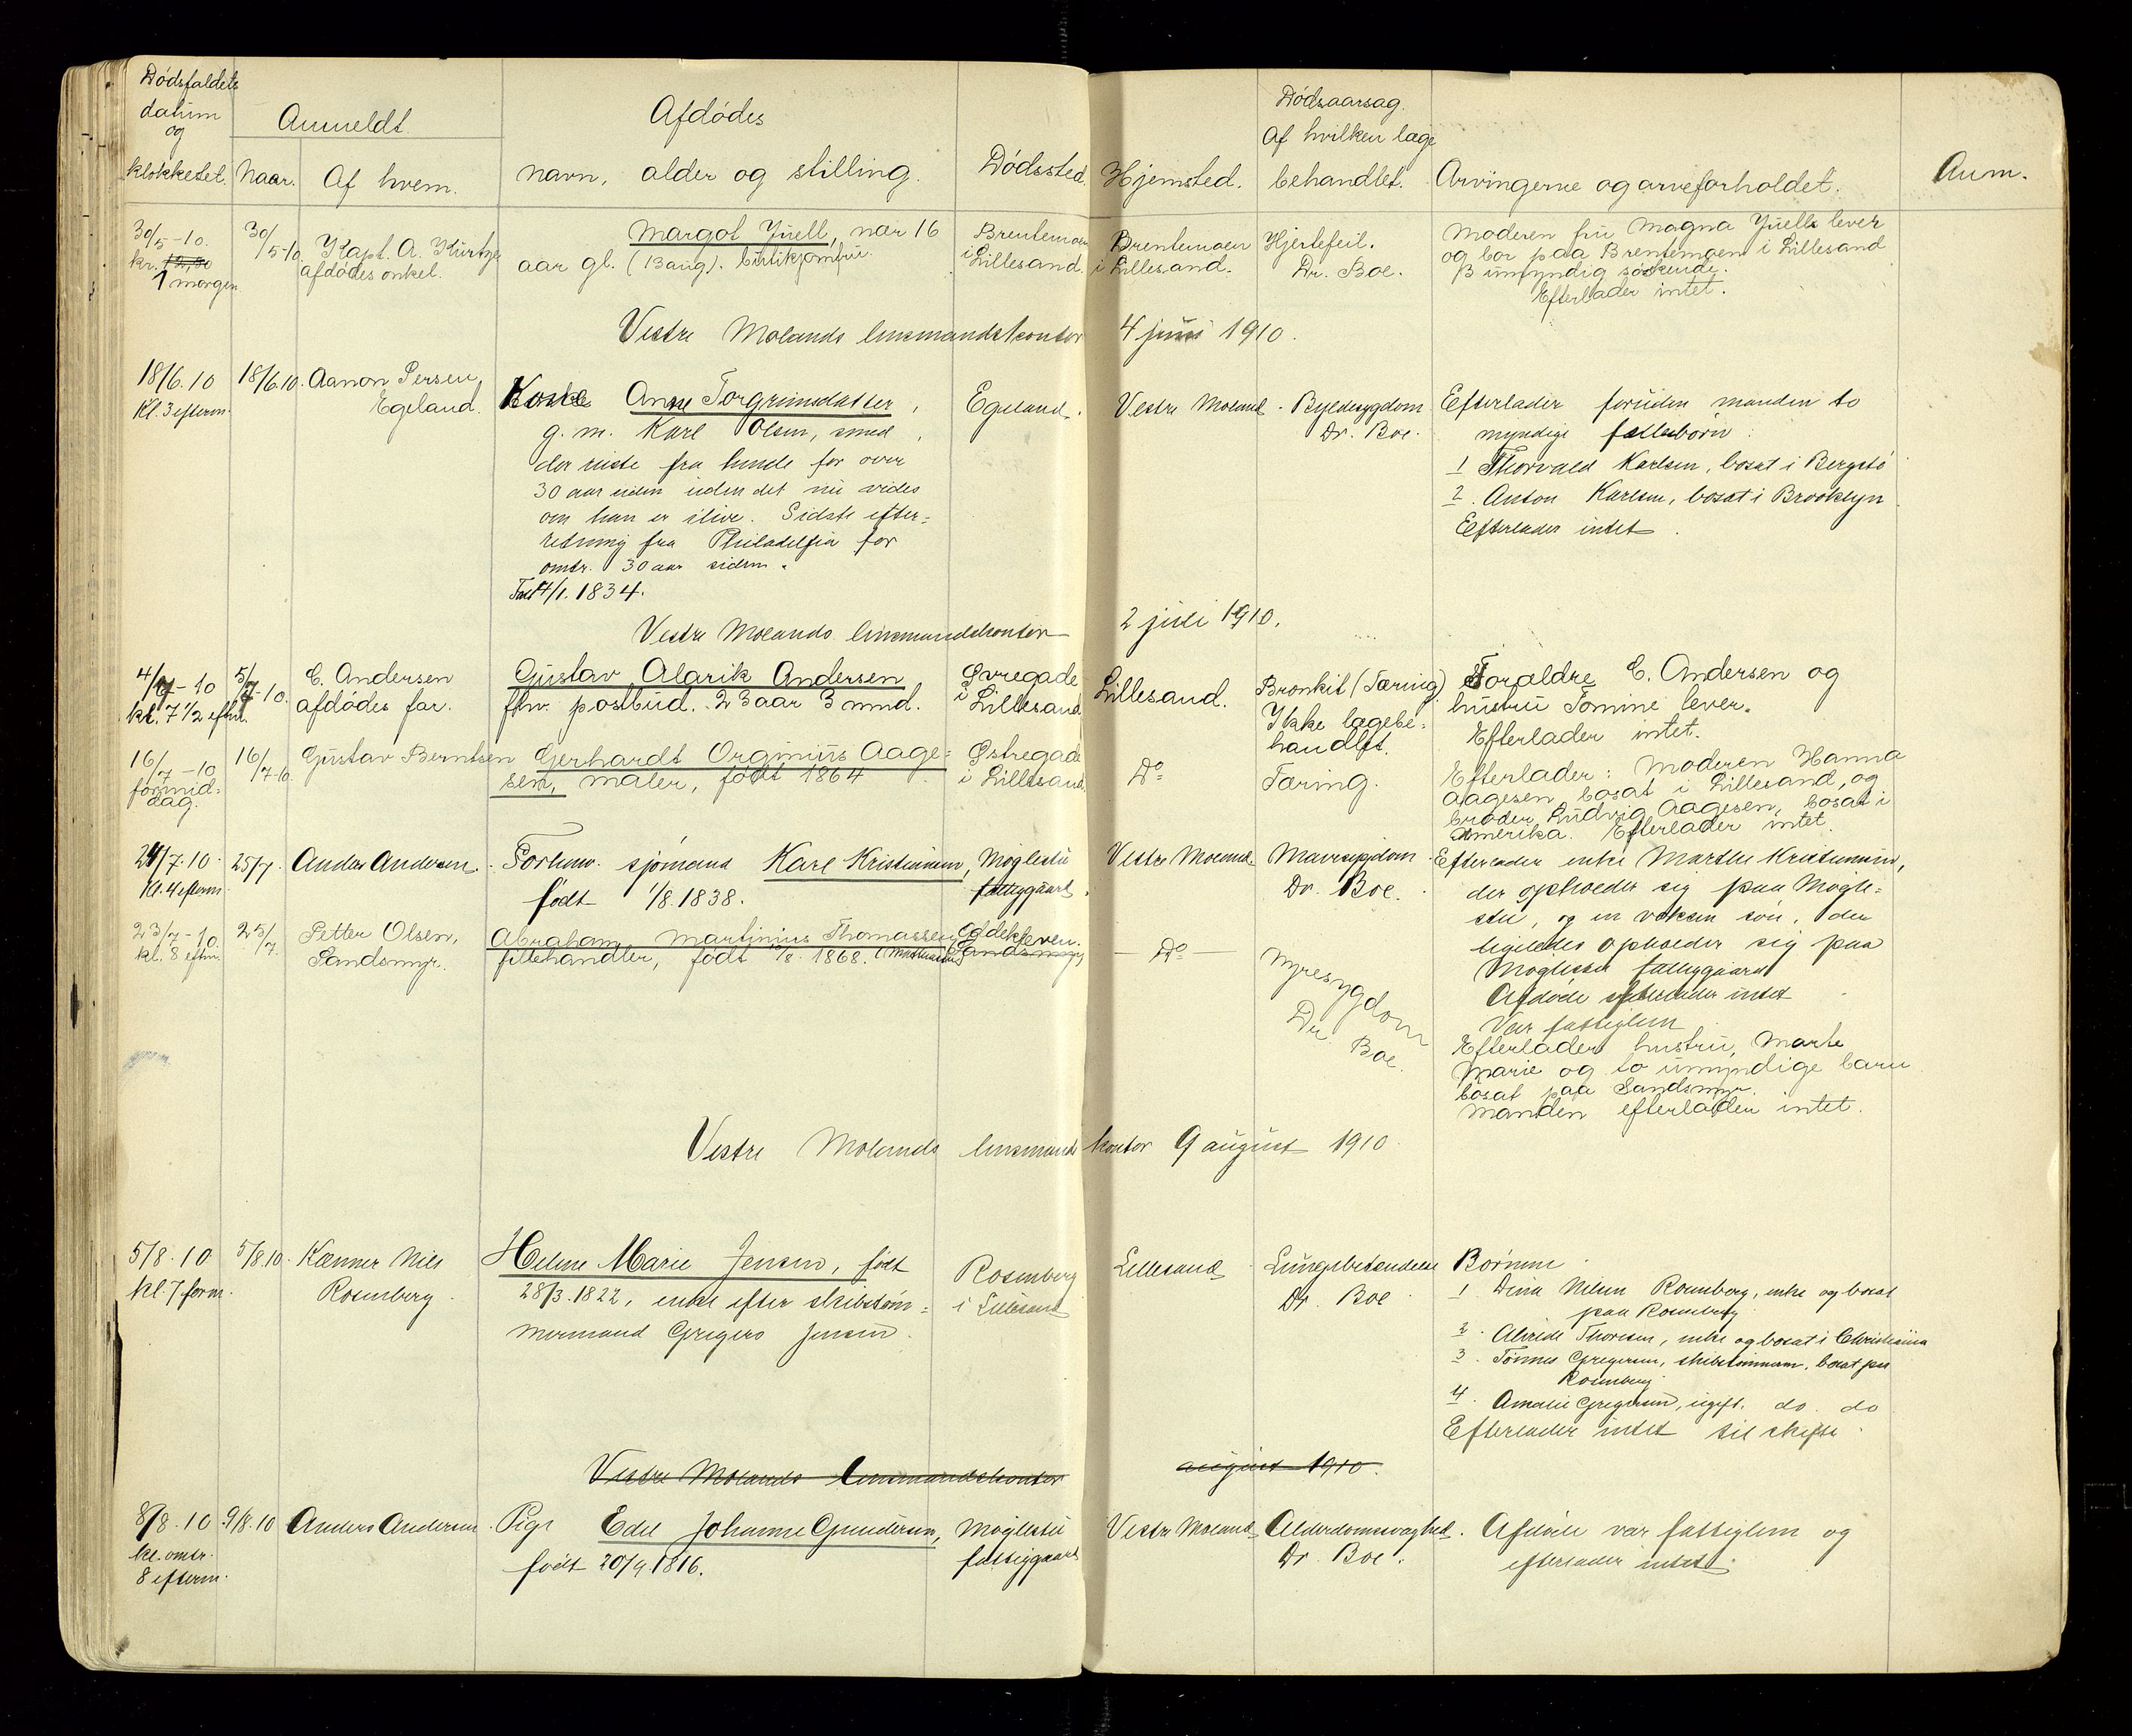 Dödsfaldets
datum
og
klokkeslet.
Anmeldt.
Naar.
Af hvem.
Afdödes
navn, alder og stilling.
Dödssted.
Hjemsted.
Dödsaarsag.
Af hvilken læge
behandlet.
Arvingerne og arveforholdet.
Anm.
30/5-10.
kr. 12,30
1 morgen
30/5-10
Kapt. A. Kürtze
afdödes onkel.
Margot Juell, nær 16
aar gl. (Baug). butikjomfru
Brentemoen
i Lillesand.
Brentemoen
i Lillesand.
Hjertefeil.
Dr. Boe.
Moderen fru Magna Juell lever
og bor paa Brentemoen i Lillesand
3 umyndig söskende.
Efterlader intet.
Vestre Molands lensmandskontor 4 juni 1910.
18/6.10
Kl. 3 efterm.
18/6.10.
Aanon Persen
Egeland.
Kone Anne Torgrimsdatter,
g. m. Karl Olsen, smed,
der reiste fra hende for over
30 aar siden uden det nu vides
om han er ilive. Sidste efter=
retning fra Philadelfia for
omtr. 30 aar siden.
Født 4/1. 1834.
Egeland.
Vestre Moland.
Byldesygdom
Dr. Boe.
Efterlader foruden manden to
myndige fællesbörn:
1 Thorvald Karlsen, bosat i Bergstö
2. Anton Karlsen, bosat i Brooklyn
Efterlader intet.
Vestre Molands lensmandskontor 2 juli 1910.
4/7-10
kl. 7 1/2 eftm.
5/7-10.
C. Andersen
afdödes far.
Gustav Alarik Andersen
fhv. postbud. 23 aar 3 mnd.
Øvregade
i Lillesand.
Lillesand.
Bronkit (Tæring)
Ikke lægebe=
handlet.
Foraldre C. Andersen og
hustru Tomine lever.
Efterlader intet.
16/7-10
formid=
dag.
16/7-10.
Gustav Berntsen
Gerhardt Orginius Aage=
sen, maler, født 1864
Østregade
i Lillesand.
Do
Tæring.
Efterlader: Moderen Hanna
Aagesen bosat i Lillesand, og
broder Ludvig Aagesen, bosat i
Amerika. Efterlader intet.
24/7.10.
Kl. 4 efterm.
25/7.
Anders Andersen.
Forhenv. sjömand Karl Kristiansen,
født 1/8. 1838.
Möglestu
fattiggaard.
Vestre Moland.
Mavesygdom
Dr. Boe.
Efterlader enke Marthe Kristiansen,
der opholder sig paa Mögle=
stu, og en voksen sön, der
ligeledes opholder sig paa
Möglestu fattiggaard
Afdöde efterlader intet.
Var fattiglem
23/7-10.
kl. 8 eftm.
25/7.
Petter Olsen,
Sandsmyr.
Abraham Martinius Thomassen
fillehandler, født 1868.
Sandsmyr
Do
Nyresygdom
Dr. Boe.
Efterlader hustru, Marte
Marie og to umyndige barn
bosat paa Sandsmyr.
Manden efterlader intet.
Vestre Molands lensmandskontor 9 august 1910
5/8.10
kl. 7 form.
5/8.10.
Kæmner Nils
Rosenberg.
Helene Marie Jensen, født
28/3.1822, enke efter skibstöm=
mermand Gregers Jensen.
Rosenberg
i Lillesand
Lillesand
Lungebetændelse
Dr. Boe
Börnene
1. Dina Nilsen Rosenberg, enke og bosat
paa Rosenberg
2. Alvilde Thorsen, enke og bosat i Christiania
3. Tönnes Gregersen, skibstömmerm., bosat paa
Rosenberg
4. Amalie Gregersen, ugift. do. do
Efterlader intet til skifte.
Vestre Molands lensmandskontor august 1910.
8/8.10
kl. omtr.
8 efterm.
9/8.10
Anders Andersen.
Pige Edel Johanne Gundersen,
født 20/9 1816.
Möglestu
fattiggaard
Vestre Moland
Alderdomssvaghed.
Dr. Boe.
Afdöde var fattiglem og
efterlader intet.